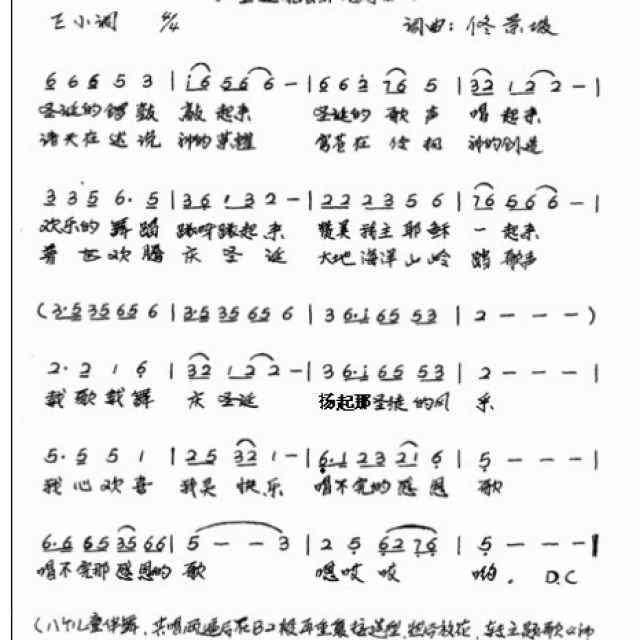 E小调 4/4 词曲：佟景坡
6 6 6 5 3 | i 6 5 6 6 - | 6 6 2 7 6 5 | 3 2 1 2 2 - |
圣诞的锣鼓 敲起来 圣诞的歌声 唱起来
诸天在述说 神的荣耀 穹苍在传扬 神的创造
3 3 5 6. 5 | 3 6 1 3 2 - | 2 2 2 3 5 6 | 7 6 5 6 6 - |
欢乐的舞蹈 跳呀跳起来 赞美我主耶稣 一起来
普世欢腾 庆圣诞 大地海洋山岭 踏歌声
( 3.5 3 5 6 5 6 | 3.5 3 5 6 5 6 | 3 6.i 6 5 5 3 | 2 - - - )
2. 2 1 6 | 3 2 1 2 2 - | 3 6.i 6 5 5 3 | 2 - - - |
载歌载舞 庆圣诞 扬起那圣徒的风采
5. 5 5 1 | 2 5 3 2 1 - | 6.1 2 3 2 1 6 | 5 - - - |
我心欢喜 我灵快乐 唱不完的感恩歌
6.6 6 5 3 5 6 6 | 5 - - 3 | 2 5 6 2 7 6 | 5 - - - ‖
唱不完那感恩的歌 嗯哎 哎 哟。 D.C
(八个儿童伴舞、